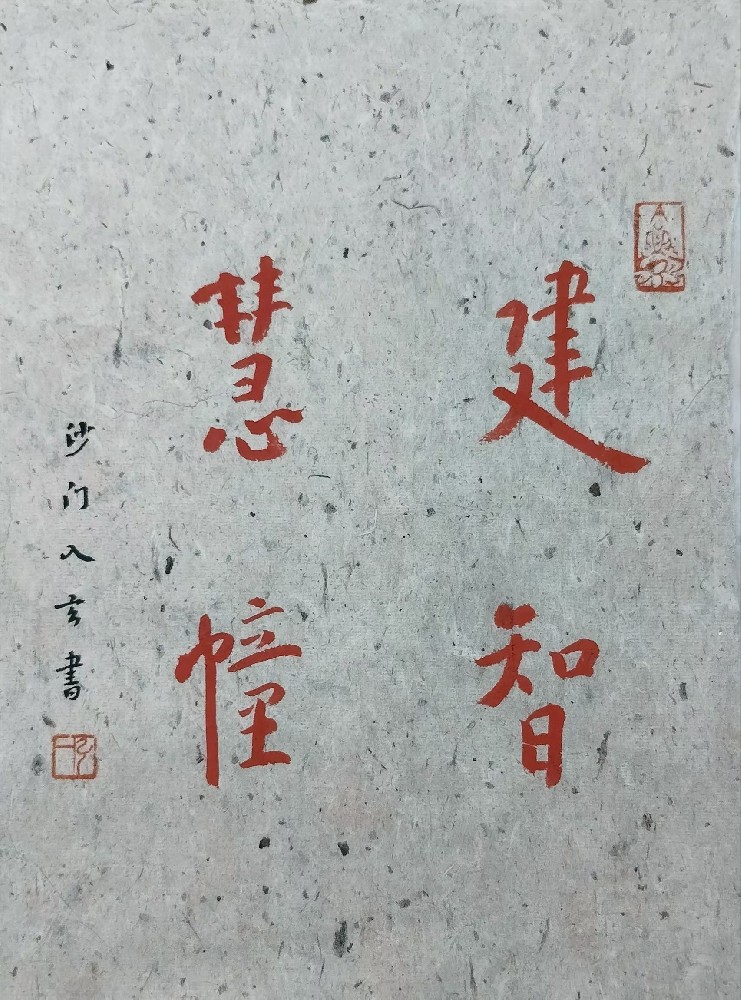 建智
慧幢
沙门入玄書